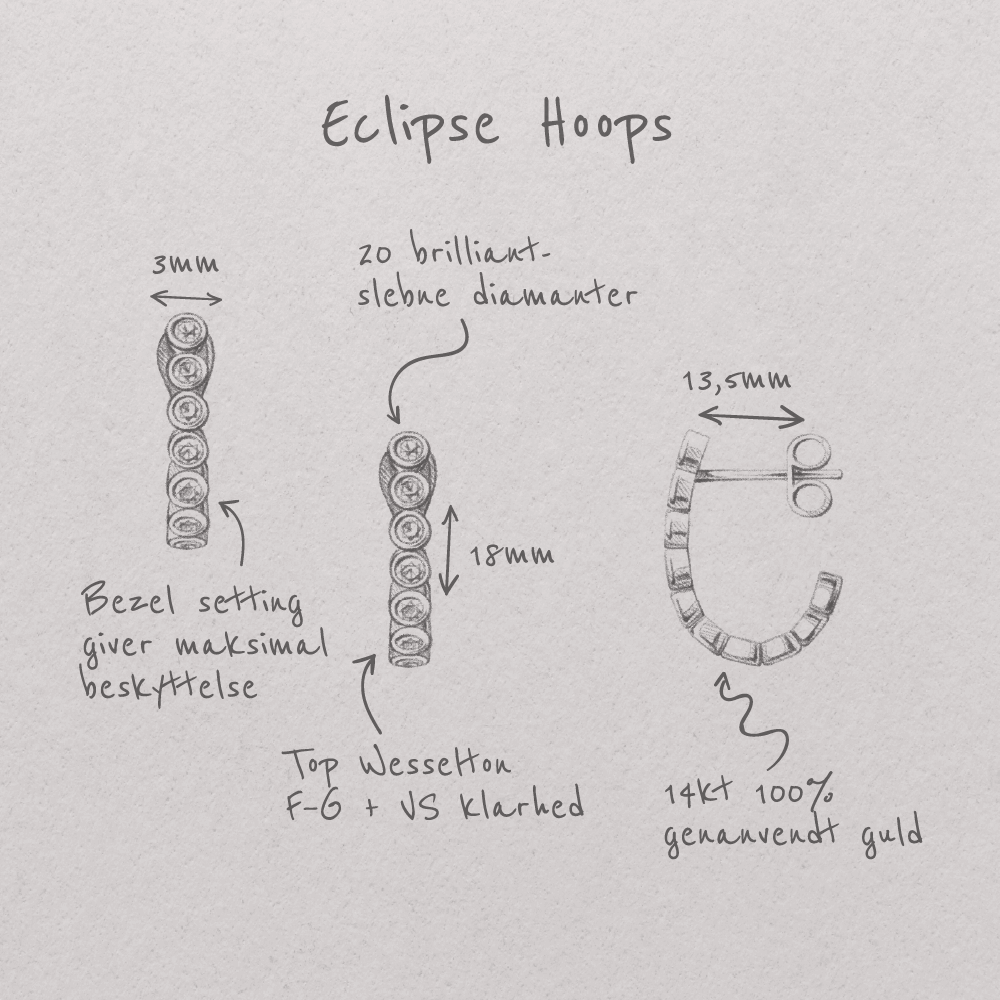 Eclipse Hoops
3mm
20 brilliant-
slebne diamanter
13,5mm
18mm
Bezel setting
giver maksimal
beskyttelse
Top Wesselton
F-G + VS klarhed
14kt 100%
genanvendt guld